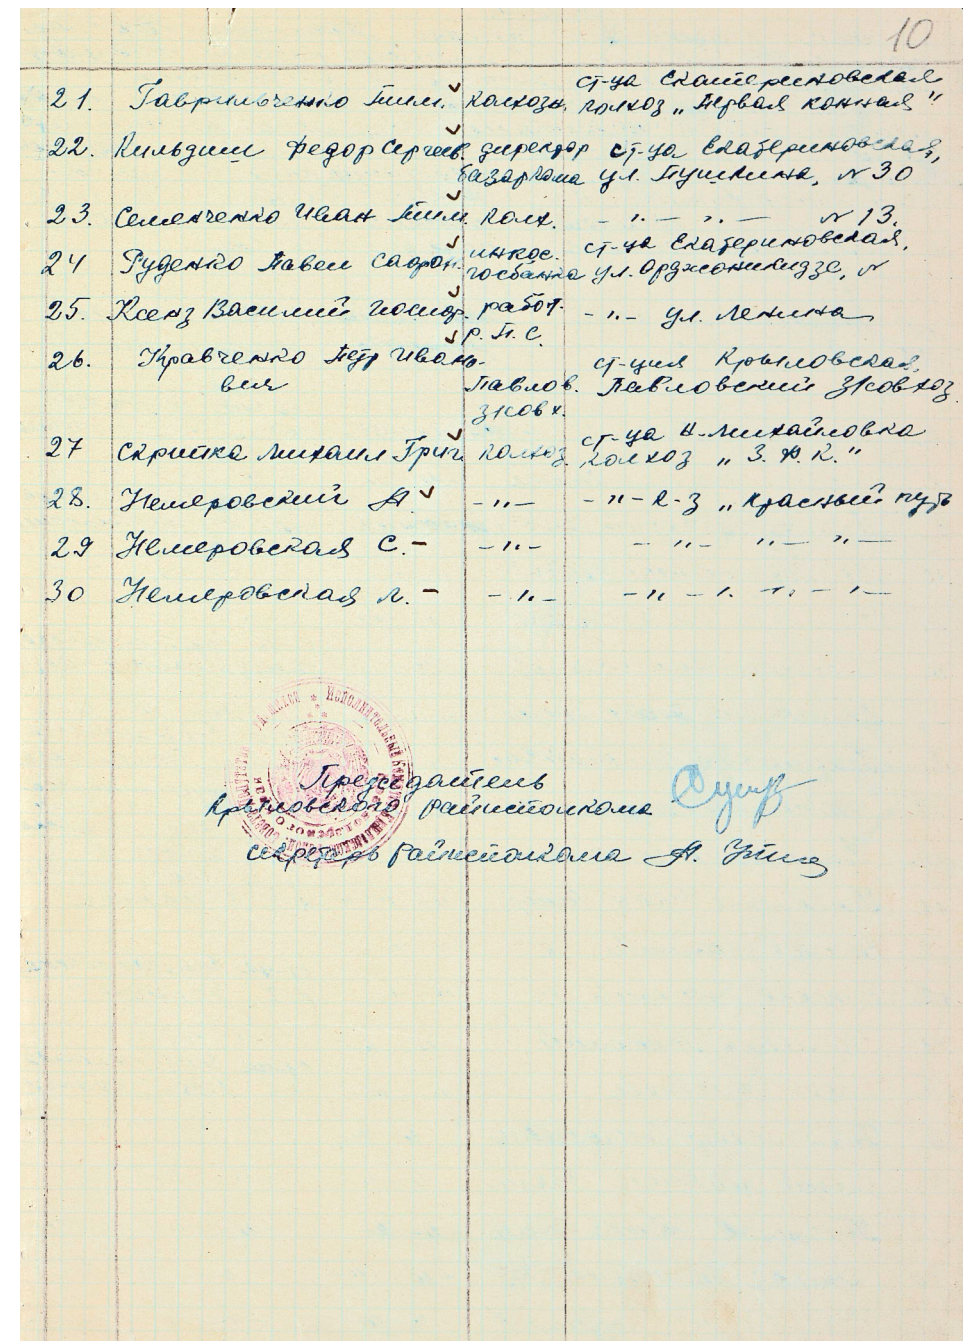 10
21. Гаврильченко Тим. колхозн. ст-ца Екатериновская
колхоз „Первая конная"
22. Кильдиш Федор Сергеев. директор ст-ца Екатериновская,
базаркома ул. Пушкина, № 30
23. Семенченко Иван Тим. колх. — „ — „ — № 13.
24 Руденко Павел Сафрон. инкас. ст-ца Екатериновская,
госбанка ул. Орджоникидзе, №
25. Ксенз Василий работ. - „ - ул. Ленина
р. П. С.
26. Кравченко Петр Ивано- ст-ция Крыловская,
вич Павлов. Павловский зсовхоз.
зсовх.
27 Скрипка Михаил Григ. колхоз. ст-ца Н-Михайловка
колхоз „З. Ф. К."
28. Немеровский А. - „ - - „ - к-з „Красный путь
29 Немеровская С. - - „ - - „ - „ — „ —
30 Немеровская л. - - „ - - „ - „ - „ - „ -
Председатель
Крыловского райисполкома
секретарь райисполкома А.